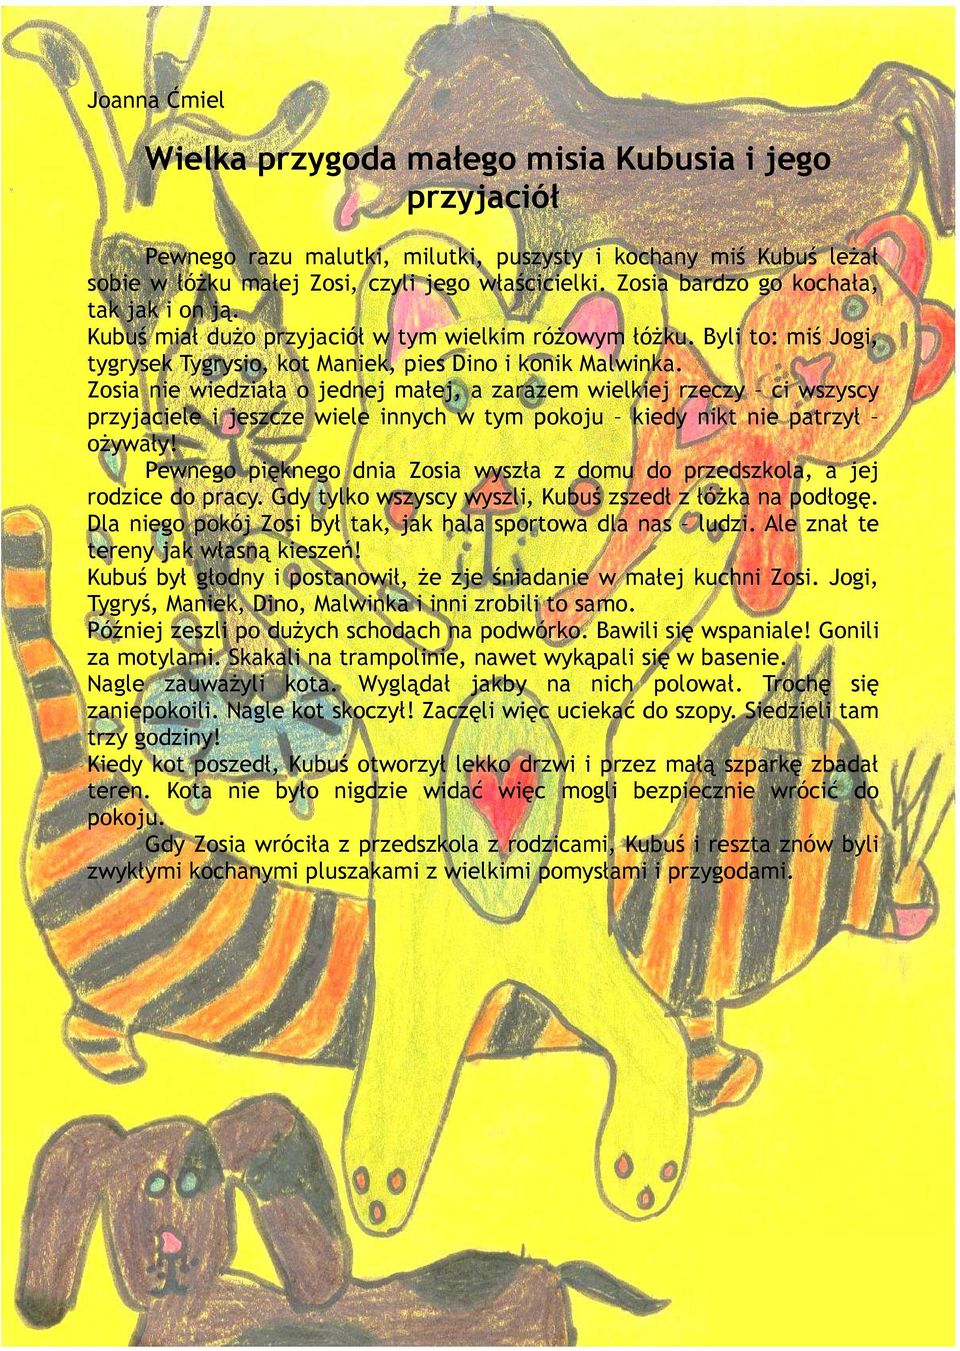 Joanna Ćmiel
Wielka przygoda małego misia Kubusia i jego
przyjaciół
Pewnego razu malutki, milutki, puszysty i kochany miś Kubuś leżał
sobie w łóżku małej Zosi, czyli jego właścicielki. Zosia bardzo go kochała,
tak jak i on ją.
Kubuś miał dużo przyjaciół w tym wielkim różowym łóżku. Byli to: miś Jogi,
tygrysek Tygrysio, kot Maniek, pies Dino i konik Malwinka.
Zosia nie wiedziała o jednej małej, a zarazem wielkiej rzeczy – ci wszyscy
przyjaciele i jeszcze wiele innych w tym pokoju – kiedy nikt nie patrzył –
ożywały!
Pewnego pięknego dnia Zosia wyszła z domu do przedszkola, a jej
rodzice do pracy. Gdy tylko wszyscy wyszli, Kubuś zszedł z łóżka na podłogę.
Dla niego pokój Zosi był tak, jak hala sportowa dla nas – ludzi. Ale znał te
tereny jak własną kieszeń!
Kubuś był głodny i postanowił, że zje śniadanie w małej kuchni Zosi. Jogi,
Tygryś, Maniek, Dino, Malwinka i inni zrobili to samo.
Później zeszli po dużych schodach na podwórko. Bawili się wspaniale! Gonili
za motylami. Skakali na trampolinie, nawet wykąpali się w basenie.
Nagle zauważyli kota. Wyglądał jakby na nich polował. Trochę się
zaniepokoili. Nagle kot skoczył! Zaczęli więc uciekać do szopy. Siedzieli tam
trzy godziny!
Kiedy kot poszedł, Kubuś otworzył lekko drzwi i przez małą szparkę zbadał
teren. Kota nie było nigdzie widać więc mogli bezpiecznie wrócić do
pokoju.
Gdy Zosia wróciła z przedszkola z rodzicami, Kubuś i reszta znów byli
zwykłymi kochanymi pluszakami z wielkimi pomysłami i przygodami.